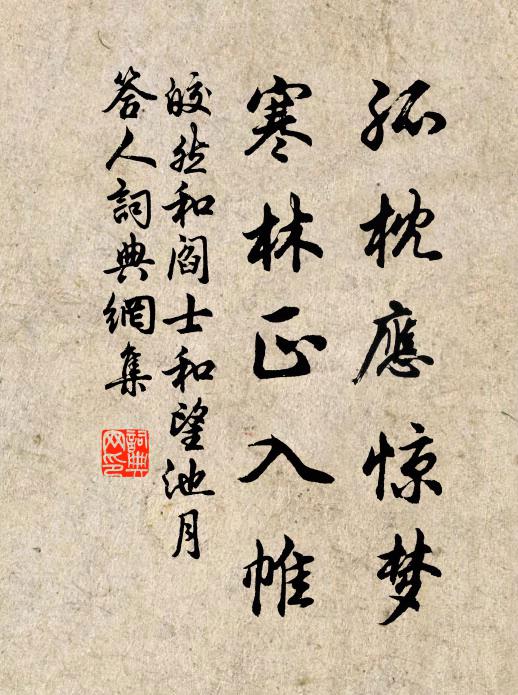 孤枕應惊梦
寒林正入帷
皎然和阎士和望池月
答人詞典網集
詞典
网印